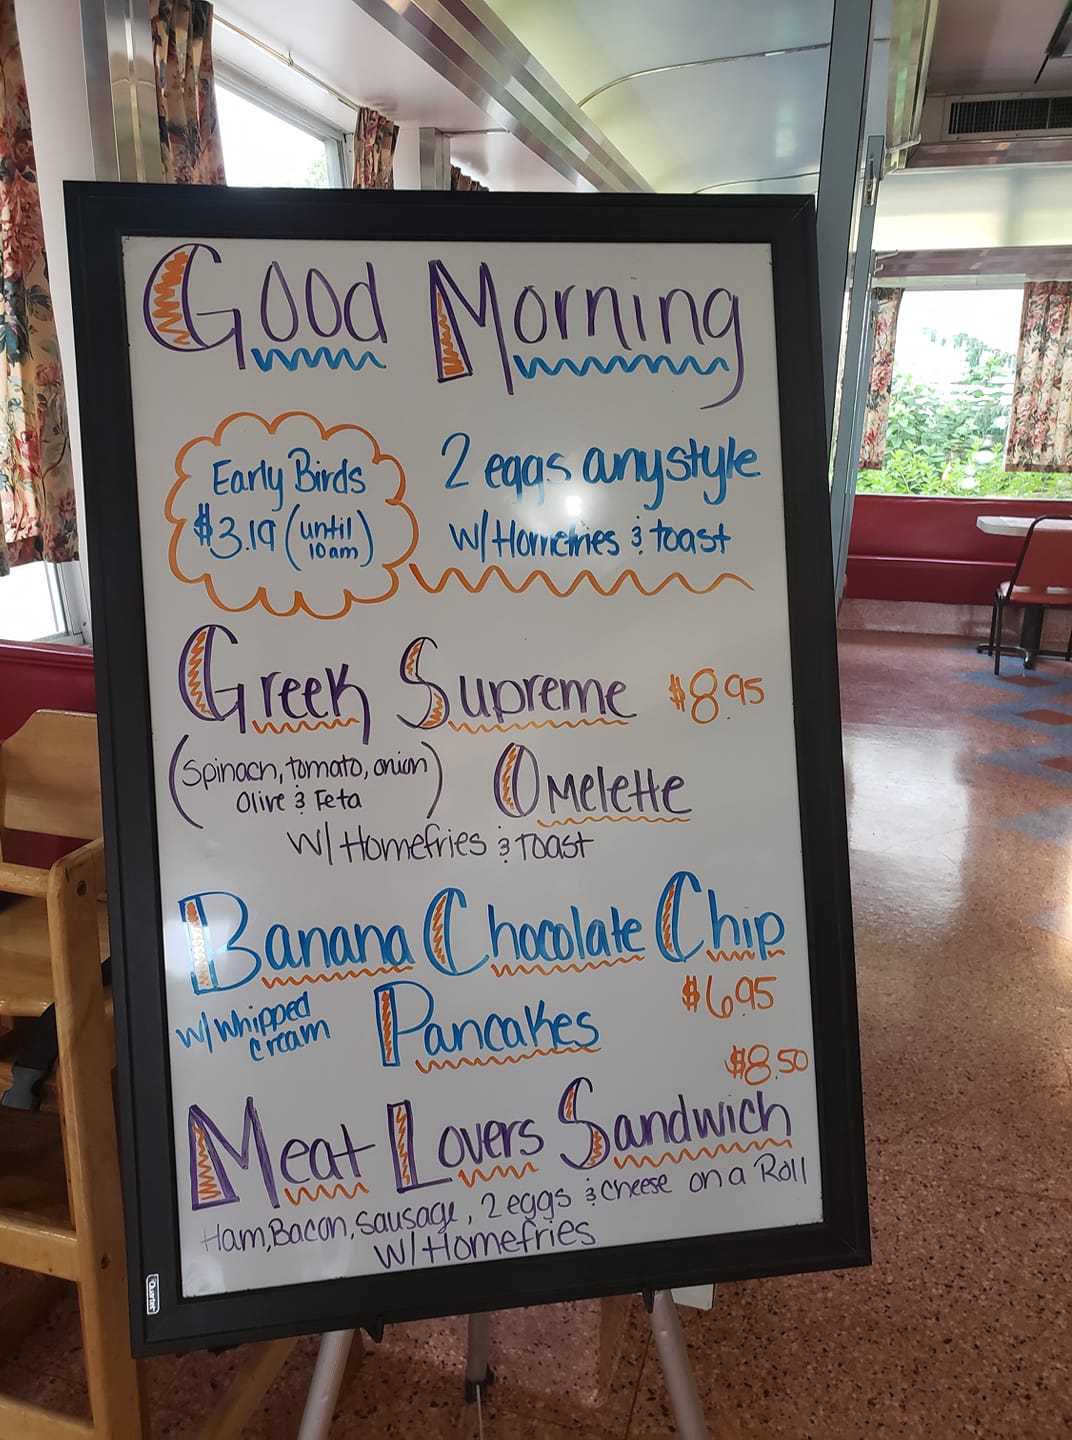 Good Morning
Early Birds
$3.19 (until
10am)
2 eggs anystyle
w/Homefries & toast
Greek Supreme $8.95
(Spinach, tomato, onion
Olive & Feta)
Omelette
w/Homefries & toast
Banana Chocolate Chip
w/whipped
cream
Pancakes
$6.95
$8.50
Meat Lovers Sandwich
Ham, Bacon, Sausage, 2 eggs & cheese on a Roll
w/Homefries
Quartet